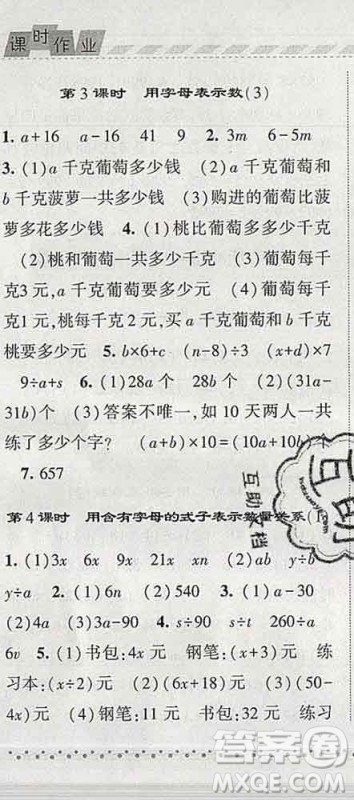 课时作业
第3课时 用字母表示数(3)
1. a+16 a-16 41 9 2. 3m 6-5m
3. (1)a千克葡萄多少钱 (2)a千克葡萄和b
千克菠萝一共多少钱 (3)购进的葡萄比菠
萝多花多少钱 4. (1)桃比葡萄多多少千克
(2)桃和葡萄一共多少千克 (3)葡萄每千
克3元,a千克葡萄要多少元 (4)葡萄每千
克3元,桃每千克2元,买a千克葡萄和b千克
桃要多少元 5. b×6+c (n-8)÷3 (x+d)×7
9÷a+s 6. (1)28a个 28b个 (2)(31a+
31b)个 (3)答案不唯一,如10天两人一共
练了多少个字? (a+b)×10=(10a+10b)个
7. 657
第4课时 用含有字母的式子表示数量关系(1)
1. (1)3x 9x 21x xn (2)ab y÷b
y÷a 2. (1)6n (2)540 3. (1)
(2)4a 4. s÷90 s÷t 260÷a
6v 5. (1)书包:4x元 钢笔:(x+3)元 练
习本:(x÷2)元 (2)(x+x÷2)元 (3)(50-
4x)元 (4)钢笔:11元 书包:32元 练习
互助文档
答案圈
MXQE.COM